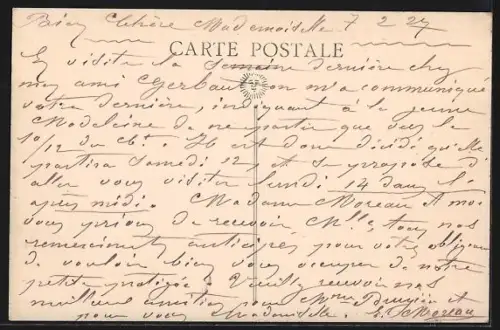 Bien Chère Mademoiselle 7 2 27
CARTE POSTALE
En visite la Semaine dernière chez
mon ami Gerbault on m'a communiqué
votre dernière, indiquant à la jeune
Madeleine de ne partir que vers le
10/12 du Ct. Il est donc décidé qu'elle
partira Samedi 12, et se propose d'
aller vous visiter lundi 14 dans l'
après midi. Madame Moreau et moi
vous prions de recevoir Mlle, tous nos
remerciements anticipés pour votre obligeance
de vouloir bien vous occuper de notre
petite protégée. Veuillez recevoir nos
meilleures amitiés pour et
pour vous Mademoiselle. Moreau